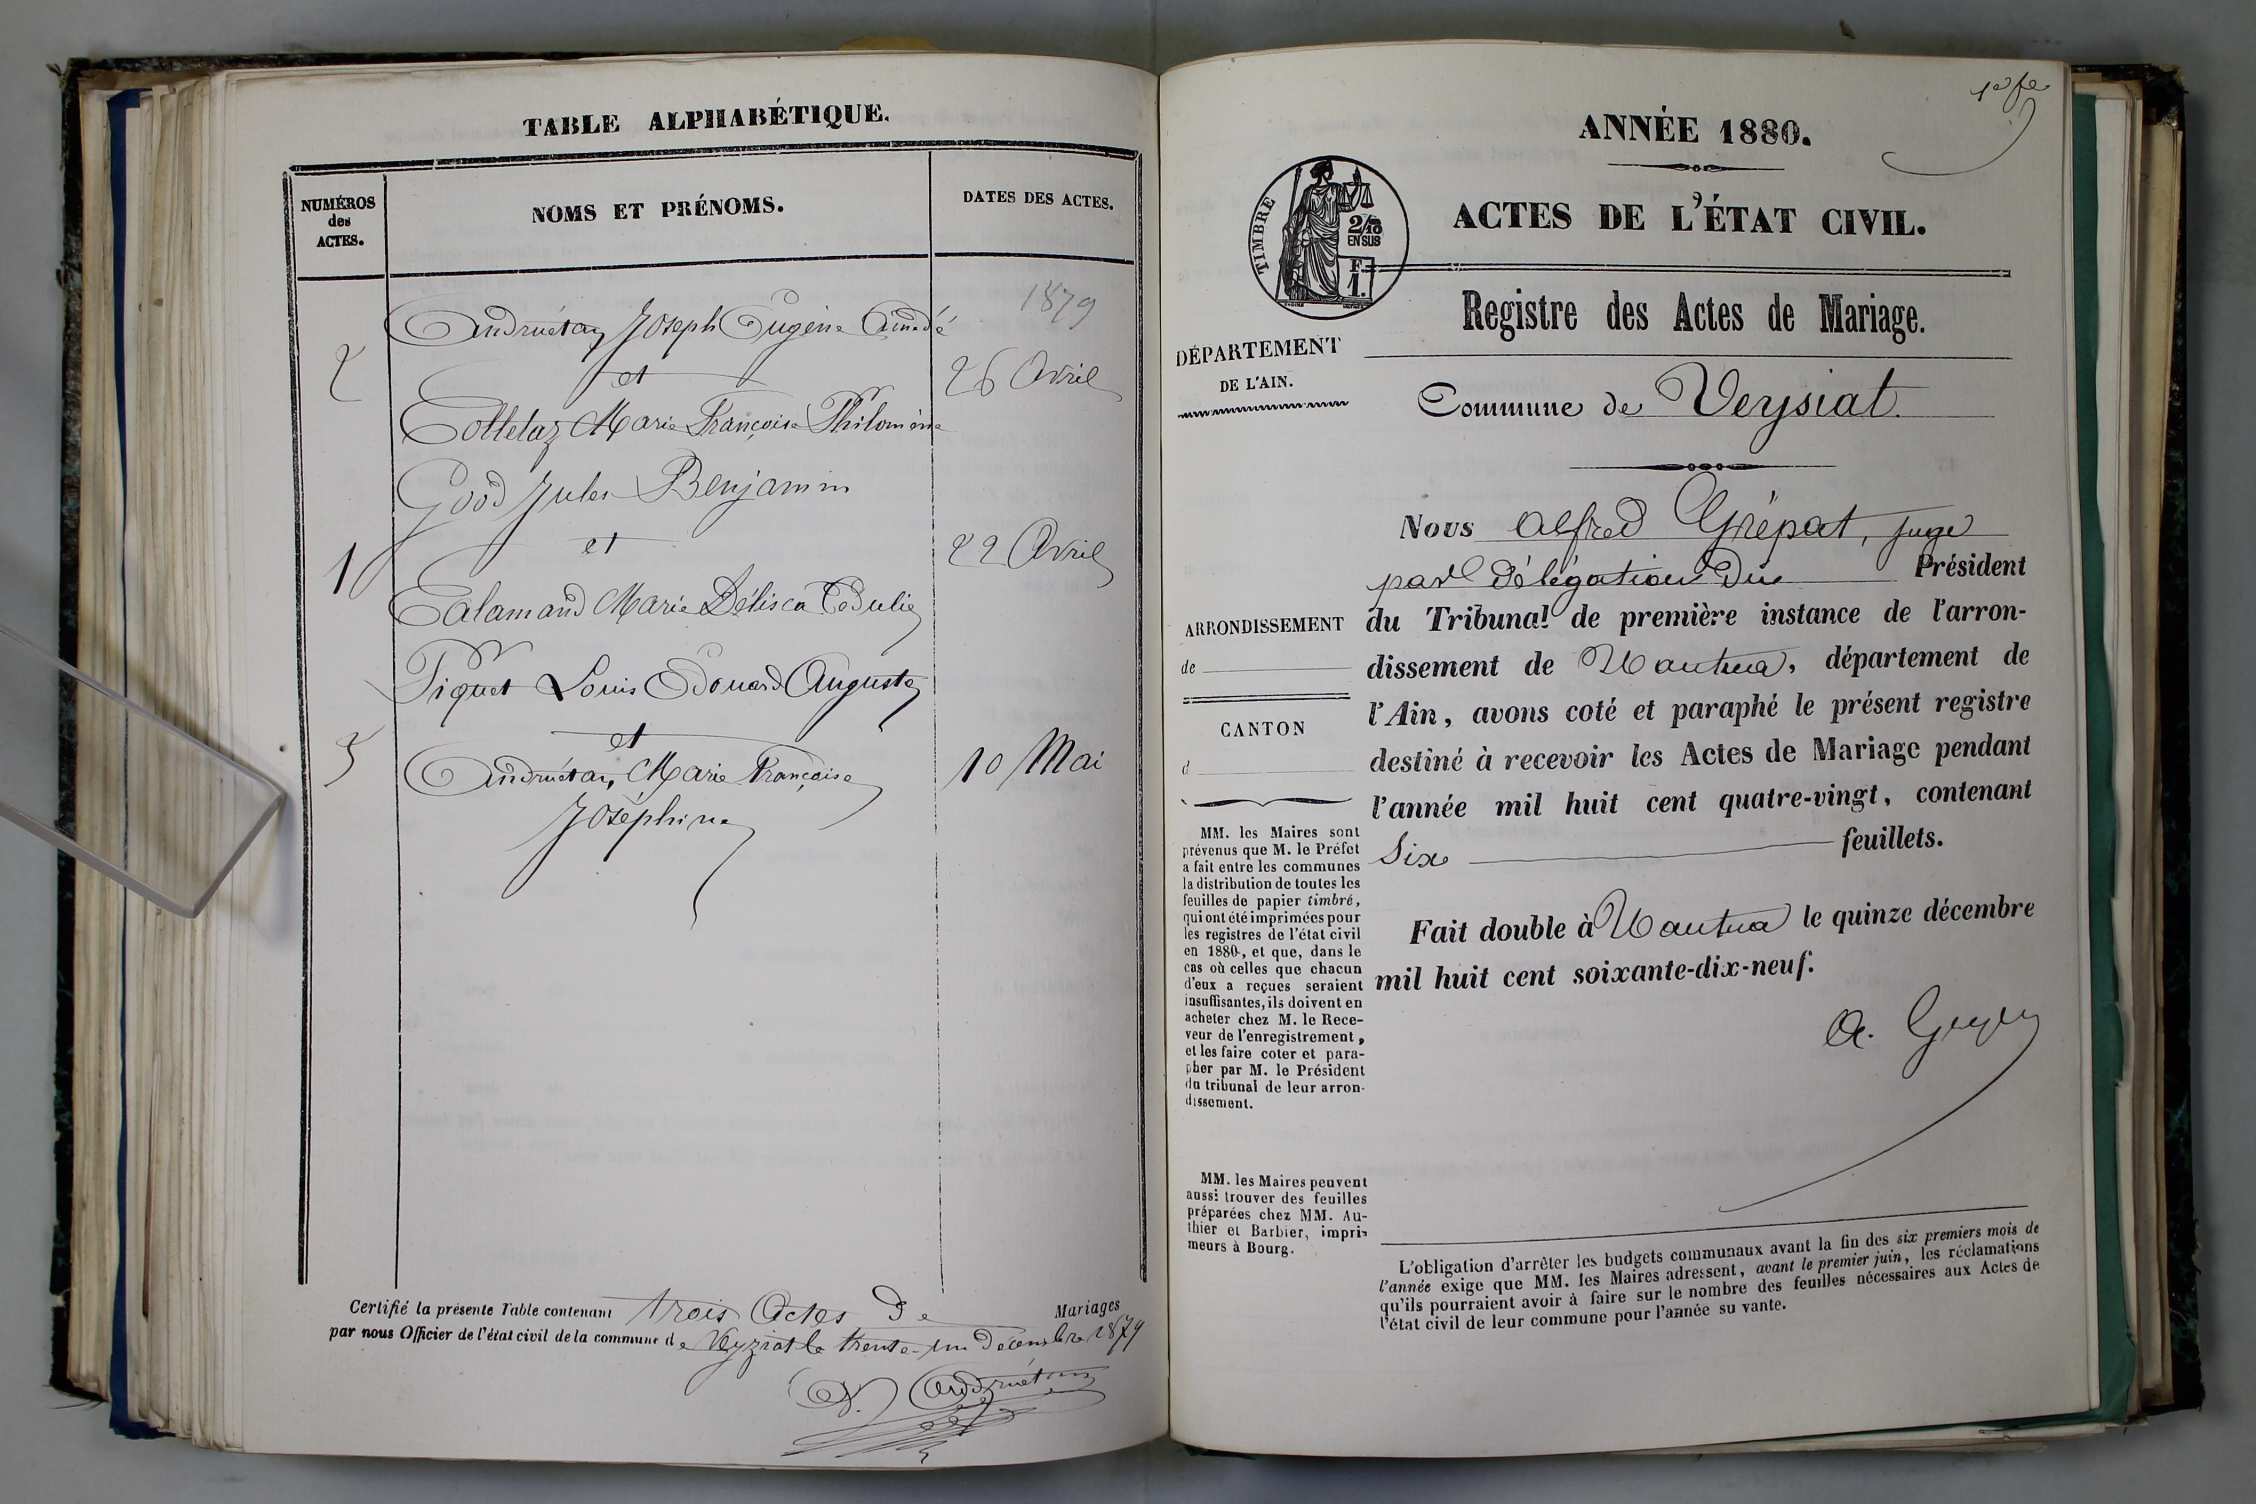 TABLE ALPHABÉTIQUE.
NUMÉROS
des
ACTES.
NOMS ET PRÉNOMS.
DATES DES ACTES.
1879
Andruétan Joseph Eugène Amédé
2
et
26 Avril
Colletaz Marie Françoise Philomène
Good Jules Benjamin
1
et
22 Avril
Calamand Marie Délisca
Piquet Louis Edouard Auguste
3
et
Andruétan Marie Françoise
10 Mai
Joséphine
Certifié la présente Table contenant trois Actes de Mariages
par nous Officier de l'état civil de la commune de Veyziat le trente-un Décembre 1879
Andruétan
ANNÉE 1880.
TIMBRE
2/10
EN SUS
F.
1.
ACTES DE L'ÉTAT CIVIL.
Registre des Actes de Mariage.
DÉPARTEMENT
DE L'AIN.
Commune de Veysiat.
Nous Alfred Grépat, juge
par délégation du Président
du Tribunal de première instance de l'arron-
dissement de Nantua, département de
l'Ain, avons coté et paraphé le présent registre
destiné à recevoir les Actes de Mariage pendant
l'année mil huit cent quatre-vingt, contenant
Six feuillets.
Fait double à Nantua le quinze décembre
mil huit cent soixante-dix-neuf.
A.
ARRONDISSEMENT
de
CANTON
d
MM. les Maires sont
prévenus que M. le Préfet
a fait entre les communes
la distribution de toutes les
feuilles de papier timbré,
qui ont été imprimées pour
les registres de l'état civil
en 1880, et que, dans le
cas où celles que chacun
d'eux a reçues seraient
insuffisantes, ils doivent en
acheter chez M. le Rece-
veur de l'enregistrement,
et les faire coter et para-
pher par M. le Président
du tribunal de leur arron-
dissement.
MM. les Maires peuvent
aussi trouver des feuilles
préparées chez MM. Au-
thier et Barbier, impri-
meurs à Bourg.
L'obligation d'arrêter les budgets communaux avant la fin des six premiers mois de
l'année exige que MM. les Maires adressent, avant le premier juin, les réclamations
qu'ils pourraient avoir à faire sur le nombre des feuilles nécessaires aux Actes de
l'état civil de leur commune pour l'année su vante.